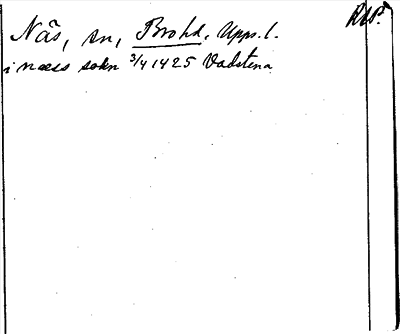 Näs, sn, Brohd, Upps. l.
RAP.
i næss sokn 3/4 1425 Vadstena